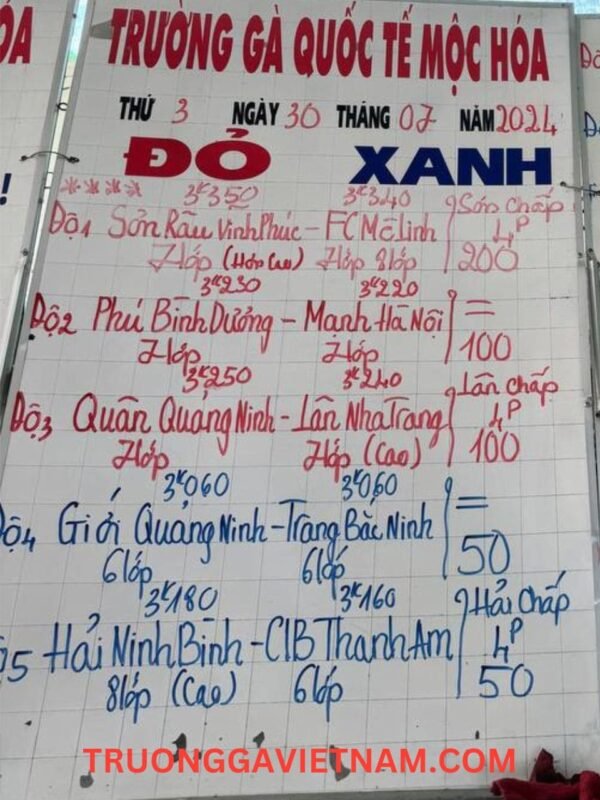 TRƯỜNG GÀ QUỐC TẾ MỘC HÓA
THỨ 3 NGÀY 30 THÁNG 07 NĂM 2024
ĐỎ XANH
**** 3ᴷ350 3ᴷ340
Độ1 Sơn Râu Vĩnh Phúc - FC Mê Linh Sơn Chấp 4ᴾ
7lớp (Hớp Cao) 7lớp 8lớp 200
3ᴷ230 3ᴷ220
Độ2 Phú Bình Dương - Mạnh Hà Nội =
7lớp 7lớp 100
3ᴷ250 3ᴷ240 Lân Chấp
Độ3 Quân Quảng Ninh - Lân Nha Trang 4ᴾ
7lớp 7lớp (Cao) 100
3ᴷ060 3ᴷ060
Độ4 Giới Quảng Ninh - Trang Bắc Ninh =
6lớp 6lớp 50
3ᴷ180 3ᴷ160 Hải Chấp
5 Hải Ninh Bình - CLB Thanh Am 4ᴾ
8lớp (Cao) 6lớp 50
TRUONGGAVIETNAM.COM
ÓA
!